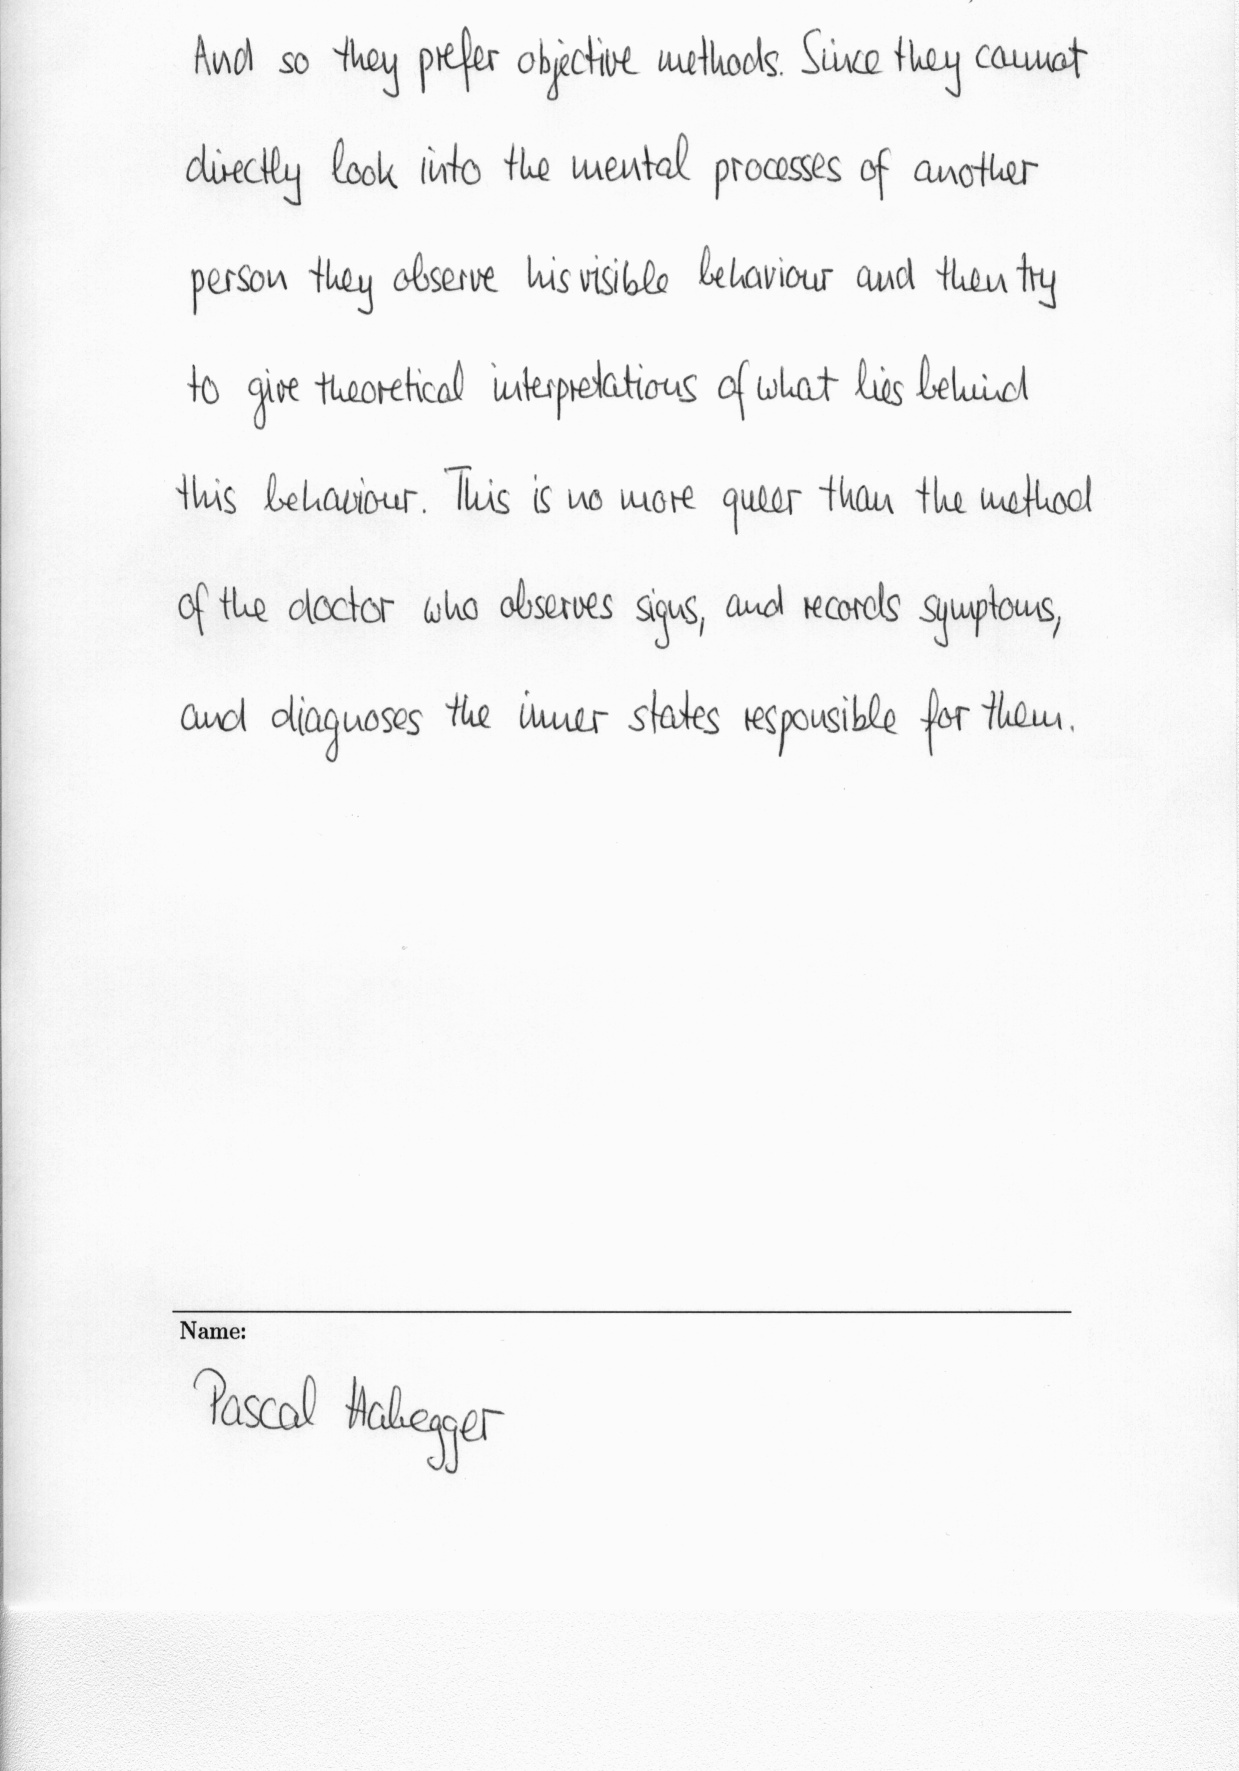 And so they prefer objective methods. Since they cannot
directly look into the mental processes of another
person they observe his visible behaviour and then try
to give theoretical interpretations of what lies behind
this behaviour. This is no more queer than the method
of the doctor who observes signs, and records symptoms,
and diagnoses the inner states responsible for them.
Name:
Pascal Habegger